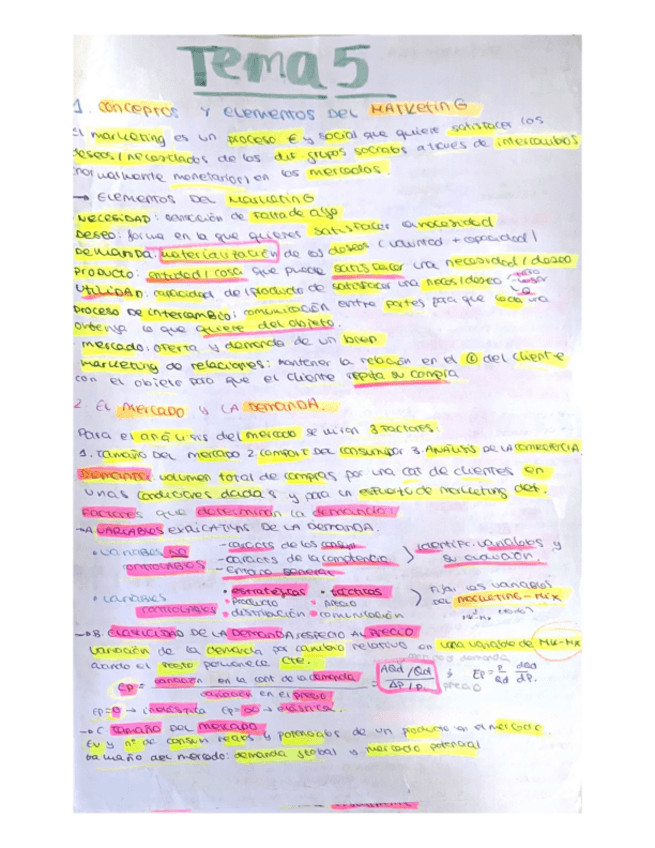 Tema 5
1. CONCEPTOS Y ELEMENTOS DEL MARKETING
El marketing es un proceso € y social que quiere satisfacer los
deseos / necesidades de los dif. grupos sociales a través de intercambios
(normalmente monetarios) en los mercados.
→ ELEMENTOS DEL MARKETING
NECESIDAD: sensación de falta de algo
DESEO: forma en la que quieres satisfacer la necesidad
DEMANDA: materialización de los deseos (voluntad + capacidad)
PRODUCTO: entidad / cosa que puede satisfacer una necesidad / deseo
UTILIDAD: capacidad del producto de satisfacer una neces / deseo
PROCESO DE INTERCAMBIO: comunicación entre partes para que cada una
obtenga lo que quiere del objeto.
mercado: oferta y demanda de un bien
marketing de relaciones: mantener la relación en el © del cliente
con el objeto para que el cliente repita su compra
2. EL MERCADO Y LA DEMANDA.
Para el análisis del mercado se miran 3 factores:
1. TAMAÑO DEL MERCADO 2. COMPORT DEL CONSUMIDOR 3. ANÁLISIS DE LA COMPETENCIA
DEMANDA: volumen total de compras por una cat de clientes en
unas condiciones dadas y para un esfuerzo de marketing det.
FACTORES que determinan la demanda:
→ A VARIABLES EXPLICATIVAS DE LA DEMANDA.
• VARIABLES NO CONTROLABLES
- caracts de los consum
- caracts de la competencia
- entorno general
identific. variables y su evolución
• VARIABLES CONTROLABLES
• estratégicas • tácticas
• producto • precio
• distribución • comunicación
Fijar las variables del marketing-mix
→ B ELASTICIDAD DE LA DEMANDA RESPECTO AL PRECIO
Variación de la demanda por cambio relativo en una variable de MK-MX
cuando el resto permanece cte.
EP = variación en la cant de la demanda / variación en el precio = ΔQd / Qd / ΔP / P ; EP = P/Qd dQd/dP.
EP=0 → inelástica EP=∞ → elástica.
→ C TAMAÑO DEL MERCADO
Ev y nº de consum reales y potenciales de un producto en el mercado.
tamaño del mercado: demanda global y mercado potencial